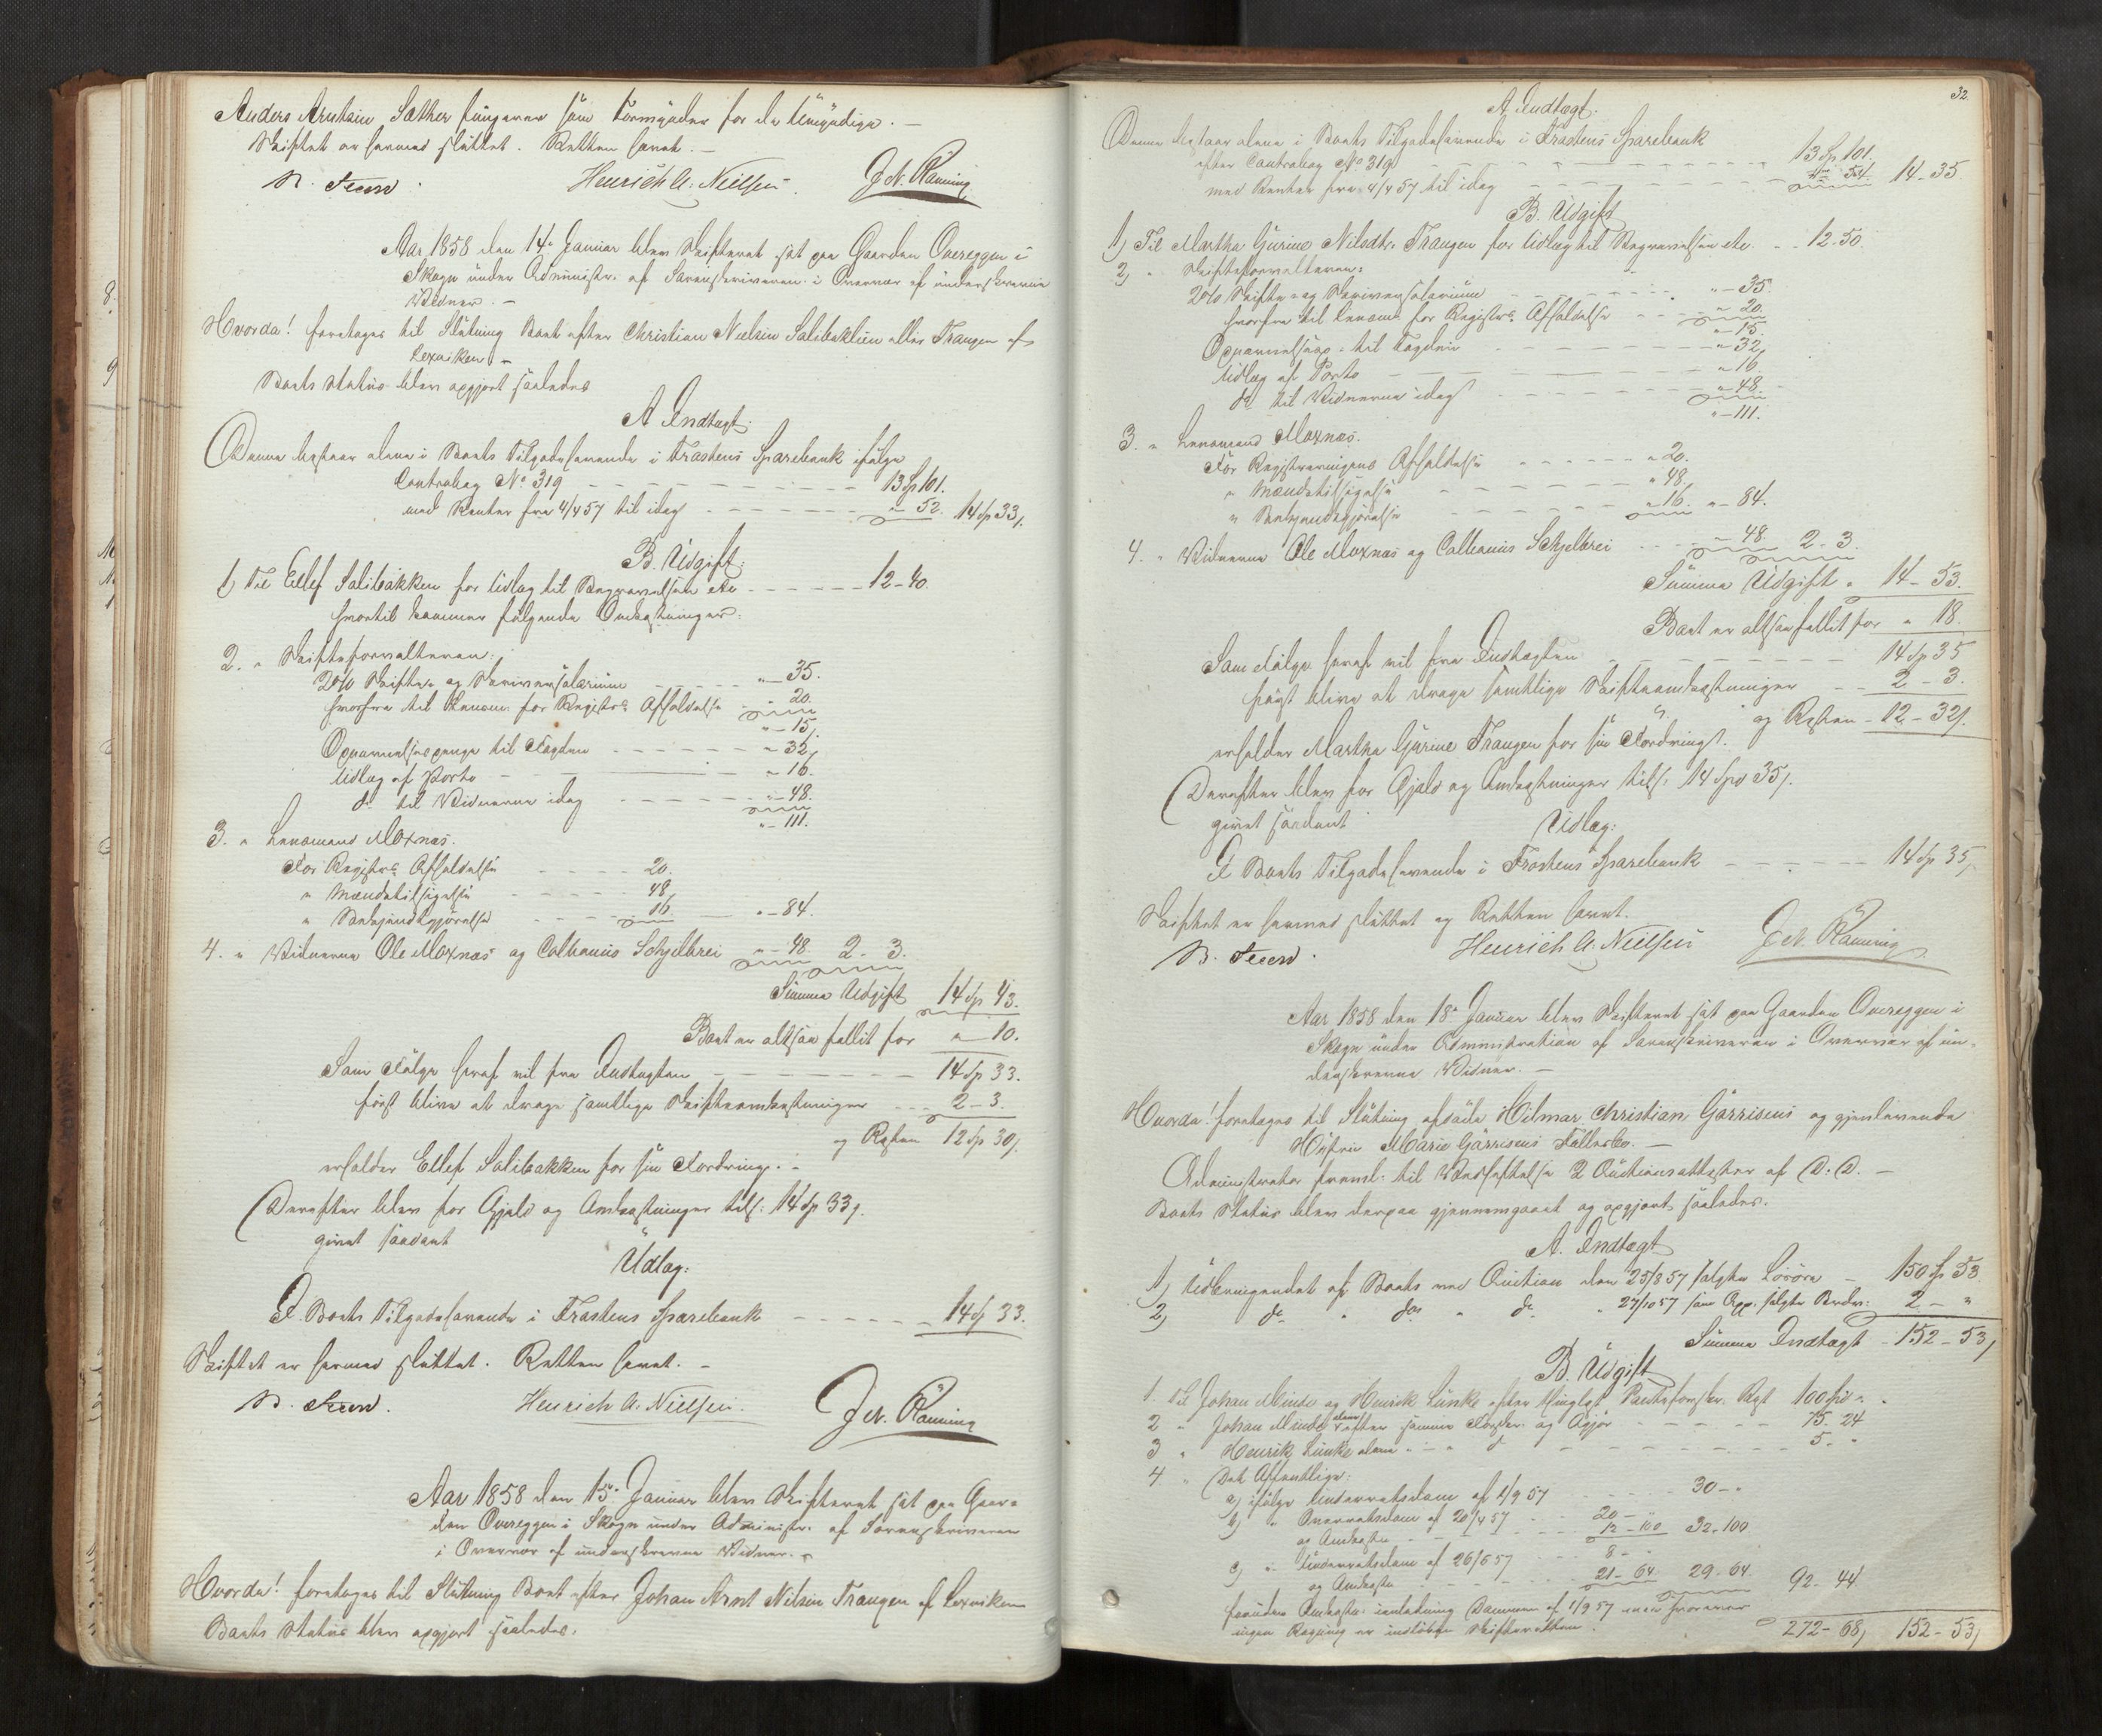 Anders Arntsen Sæther fungerer som Formynder for de Umyndige. –
Skiftet er hermed sluttet. Retten hævet. –
N. Steen. Henrich A. Nielsen. J. N. Ramning
Aar 1858 den 14de Januar blev Skifteret sat paa Gaarden Overeggen i
Skogn under Administr. af Sorenskriveren i Overvær af underskrevne
Vidner. –
Hvorda! foretoges til Slutning Boet efter Christian Nielsen Salibakken eller Trangen af
Lexviken. –
Boets Status blev opgjort saaledes
A Indtægt.
Denne bestaar alene i Boets Tilgodehavende i Frostens Sparebank ifølge
Contrabog No 319 – – – 13 Sp 101.
med Renter fra 4/4 57 til idag – – – " – 52. 14 Sp 33 ß.
B. Udgift.
1) Til Ellef Salibakken for Udlæg til Begravelsen etc – – – 12 – 40.
hvortil kommer følgende Omkostninger:
2. " Skifteforvalteren:
2% Skifte- og Skriversalarium – – – " – 35.
hvorfra til Lensm. for Registrs Afholdelse " 20.
" – 15 ß.
Oppebørselspenge til Fogden – – – " – 32 ß
Udlæg af Porto – – – " – 16.
do til Vidnerne idag – – – " – 48.
" – 111.
3. " Lensmand Moxnæs.
For Registrs Afholdelse – – – 20.
" Mændstilsigelse – – – 48 ß
" Bekjendtgjørelse – – – 16 " – 84.
4. " Vidnerne Ole Moxnæs og Calhanius Schjelbrei " – 48. 2 – 3.
Summa Udgift 14 Sp 43.
Boet er altsaa fallit for " – 10.
Som Følge heraf vil fra Indtægten – – – 14 Sp 33.
først blive at drage samtlige Skifteomkostninger – – 2 – 3.
og Resten 12 Sp 30 ß.
erholder Ellef Salibakken for sin Fordring. –
Derefter blev for Gjeld og Omkostninger tils: 14 Sp 33 ß.
givet saadant
Udlæg:
I Boets Tilgodehavende i Frostens Sparebank – – – 14 Sp 33.
Skiftet er hermed sluttet. Retten hævet. –
N. Steen. Henrich A. Nielsen. J. N. Ramning
Aar 1858 den 15de Januar blev Skifteret sat paa Gaar-
den Overeggen i Skogn under Administr. af Sorenskriveren
i Overvær af underskrevne Vidner. –
Hvorda! foretoges til Slutning Boet efter Johan Arnt Nilsen Trangen af Lexviken
Boets Status blev opgjort saaledes.
32.
A. Indtægt.
Denne bestaar alene i Boets Tilgodehavende i Frostens Sparebank
efter Contrabog No 319 – – – 13 Sp 101.
med Renter fra 4/4 57 til idag – – – " 54. 14 – 35.
B. Udgift
1) Til Martha Gurine Nilsdtr. Trangen for Udlæg til Begravelsen etc. – – 12 – 50.
2) " Skifteforvalteren:
2% Skifte- og Skriversalarium – – – " – 35.
hvorfra til Lensm. for Registrs Afholdelse – – – " 20.
" – 15.
Oppebørselspp. til Fogden – – – " – 32 ß
Udlæg af Porto – – – " – 16.
do til Vidnerne idag – – – " – 48.
" – 111.
3. " Lensmand Moxnæs.
For Registreringens Afholdelse – – – " 20.
" Mændstilsigelse – – – " 48.
" Bekjendtgjørelse – – – " 16. " – 84.
4. " Vidnerne Ole Moxnæs og Calhanius Schjelbrei – – " – 48. 2 – 3.
Summa Udgift " 14 – 53.
Boet er altsaa fallit for " 18.
Som Følge heraf vil fra Indtægten – – – 14 Sp 35
først blive at drage samtlige Skifteomkostninger – – 2 – 3.
og Resten – 12 – 32 ß.
erholder Martha Gurine Trangen for sin Fordring.
Derefter blev for Gjeld og Omkostninger tils: 14 Spd 35 ß.
givet saadant Udlæg:
I Boets Tilgodehavende i Frostens Sparebank – – – 14 Sp 35 ß
Skiftet er hermed sluttet og Retten hævet.
N. Steen. Henrich A. Nielsen J. N. Ramning
Aar 1858 den 18de Januar blev Skifteret sat paa Gaarden Overeggen i
Skogn under Administration af Sorenskriveren i Overvær af un-
derskrevne Vidner. –
Hvorda! foretoges til Slutning afdøde Hilmar Christian Gørrisens og gjenlevende
Hustru Marie Gørrisens Fællesbo. –
Administrator freml: til Vedheftelse 2 Auctionsattester af D. D. –
Boets Status blev derpaa gjennemgaaet og opgjort saaledes.
A. Indtægt
1) Udbringendet af Boets ved Auction den 25/8 57 solgte Løsøre – 150 Sp 53
2) do " do " do " 27/10 57 2 – "
Summa Indtægt – 152 – 53 ß
B. Udgift
1. Til Johan Minde og Henrik Lunke efter thinglyst Panteforskr. Rest 100 Spd " .
2 " Johan Minde alene efter samme Forskr. og Opgjør – – – 75. 24
3 " Henrik Lunke alene " – " d – – – 5. "
4 " Det Offentlige:
a) ifølge Underretsdom af 1/9 57 – – 30 – "
b) " Overretsdom af 20/4 57 – – 20 –
og Omkostn – – – 12 – 100 32 – 100
c) " Underretsdom af 26/6 57 – – 8 –
og Omkostn – – – 21 – 64. 29 – 64. 92 – 44
foruden Omkostn. Dommen af 1/9 57 hvorover
ingen Regning er indløben Skifteretten. 272 – 68 ß 152 – 53 ß